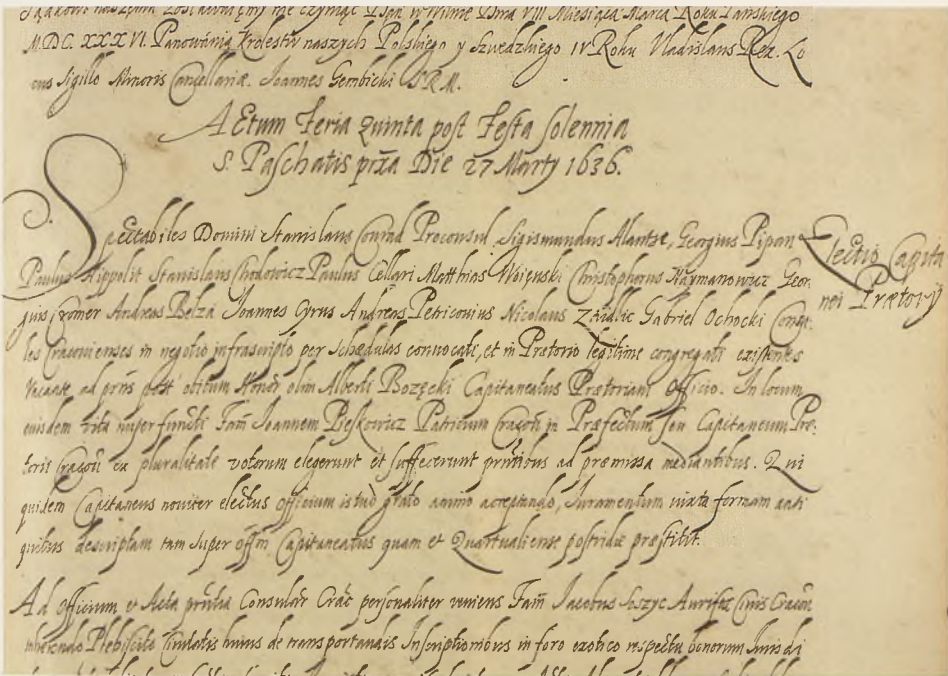 naszym zostawuięmy nie czyniąc Dan w Wilnie Dnia VIII Miesiąca Marca Roku Panskiego
M.DC.XXXVI. Panowánia Krolestw naszych Polskiego y Szwedzkiego IV Roku Vladislaus Rex. Lo
cus Sigillo Minoris Cancellariæ. Joannes Gembicki S R M.
Actum Feria Quinta post Festa solennia
S. Paschatis pñxa Die 27 Marty 1636.
Spectabiles Domini Stanislaus Conrad Proconsul, Sigismundus Alantse, Georgius Pipan
Electio Capita
Paulus Hippolit Stanislaus Chodowicz Paulus Cellari Matthias Woienski Christophorus Naymanowicz Geor:
nei Prætorij
gius Cromer Andreas Belza Joannes Cyrus Andreas Petricouius Nicolaus Zaidlic Gabriel Ochocki Consu:
les Cracouienses in negotio infrascripto per Schedulas conuocati, et in Prætorio legitime congregati existentes
Vacante ad pñs post obitum Honor olim Alberti Bozęcki Capitaneatus Prætoriani Officio. In locum
eiusdem vita nuper functi Fam Joannem Pieskowicz Patritium Cracoñ in Præfectum seu Capitaneum Præ:
torii Cracoñ ex pluralitate votorum elegerunt et suffecerunt pñtibus ad præmissa mediantibus. Qui
quidem Capitaneus nouiter electus officium istud grato animo acceptando, Iuramentum iuxta formam anti
quitus descriptam tam super offm Capitaneatus quam et Quartualiense postridie præstitit.
Ad Officium et Acta pñtia Consulār Crac personaliter veniens Fam Jacobus Soszyc Aurifex Ciuis Cracoñ
inhærendo Plebiscito Ciuitatis huius de transportandis Inscriptionibus in foro exotico respectu bonorum Iurisdi